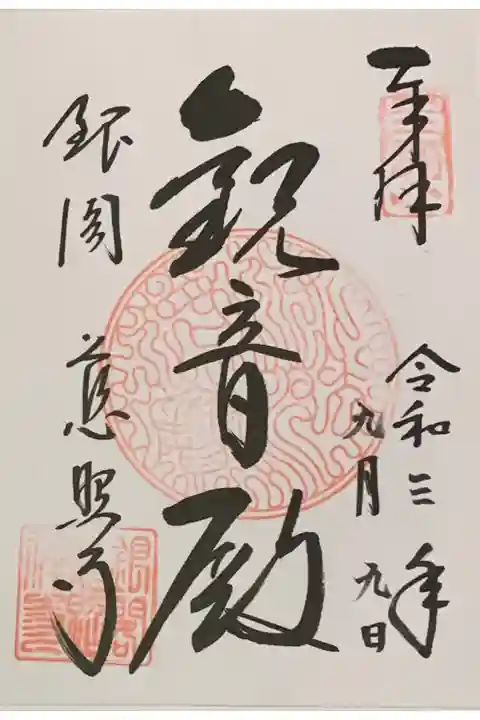 奉拝
令和三年
九月九日
観音殿
銀閣 慈照寺